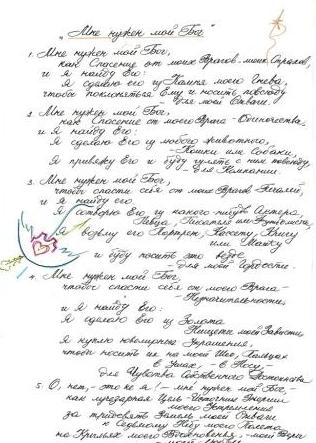 „Мне нужен мой Бог"
1. Мне нужен мой Бог,
как Спасение от моих Врагов-моих Страхов,
и я найду Его:
Я сделаю его из Камня моего Гнева,
чтобы поклоняться Ему и носить повсюду
для моей Отваги.
2. Мне нужен мой Бог,
как Спасение от моего Врага-Одиночества,
и Я найду Его:
Я сделаю Его из любого животного,
Кошки или Собаки,
Я привяжу Его и буду гулять с ним повсюду
для Компании.
3. Мне нужен мой Бог,
чтобы спасти себя от моего Врага-
и Я найду его
Я сотворю Его из какого-нибудь Актера,
Певца, Писателя или Футболиста,
Я возьму его Портрет, Кассету, Книгу
или Майку
и буду носить это везде
для моей Гордости.
4. Мне нужен мой Бог,
чтобы спасти себя от моего Врага-
и Я найду Его:
Я сделаю его из Золота
Нищеты моей Зависти
Я куплю ювелирные Украшения,
чтобы носить их на моей Шее, Пальцах
в Ушах, - в Носу -
для Чувства Собственного Достоинства
5. О, нет, - это не я! - мне нужен мой Бог,
как Цель-Источник Энергии
моего Устремления
за тридевять Земель моей Отваги
к Седьмому Небу моего Полета
на Крыльях моего Вдохновенья, - моей Веры